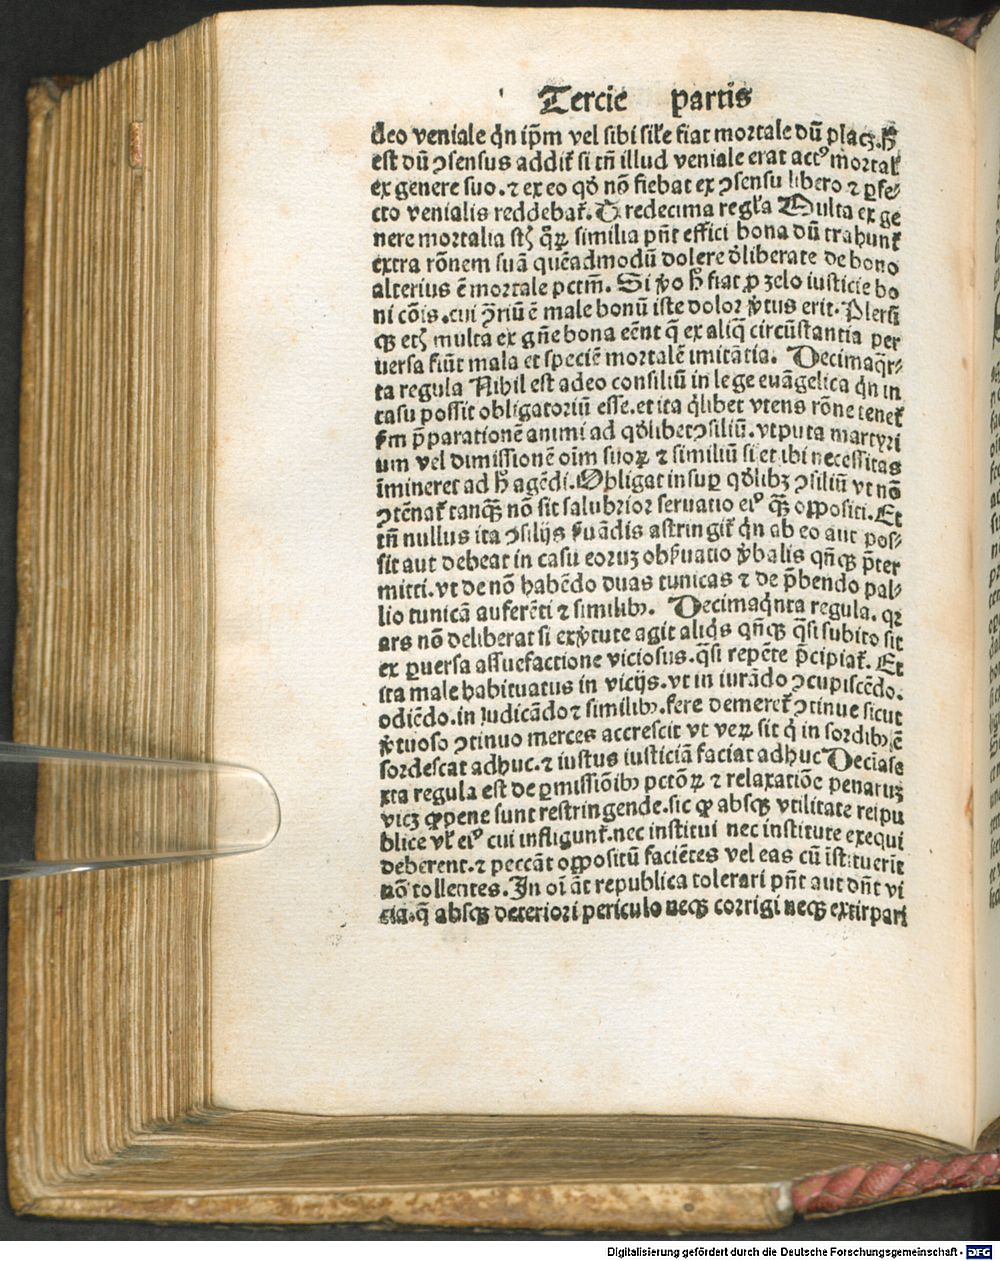 Tercie partis
deo veniale qͥn ip̄m vel sibi sil̄e fiat mortale dū placꝫ. h̄
est dū ꝯsensus addit̄ si tn̄ illud veniale erat actꝰ mortal̄
ex genere suo. ⁊ ex eo qđ nō fiebat ex ꝯsensu libero ⁊ ꝑfe-
cto venialis reddebat̄. Tredecima regl̄a Multa ex ge
nere mortalia sꝫ q̄ꝝ similia pn̄t effici bona dū trahunt̄
extra rōnem suā quēadmodū dolere đliberate de bono
alterius ē mortale pctm̄. Si v̄o h̄ fiat ꝓ zelo iusticie bo
ni cōis. cui ꝯ̄riū ē male bonū iste dolor v̄tus erit. Plerū
qꝫ etꝫ multa ex gn̄e bona eēnt q̄ ex aliq̄ circūstantia per
uersa fiūt mala et speciē mortalē imitātia. Decimaq̄r-
ta regula Nihil est adeo consiliū in lege euāgelica qͥn in
casu possit obligatoriū esse. et ita qͥlibet vtens rōne tenet̄
ẜm p̄parationē animi ad qđlibet ꝯsiliū. vtputa martyri
um vel dimissionē oīm suoꝝ ⁊ similiū si et ibi necessitas
īmineret ad h̄ agēdi. Obligat insuꝑ qđlibꝫ ꝯsiliū vt nō
ꝯtēnat̄ tanqꝫ̄ nō sit salubrior seruatio eiꝰ qꝫ̄ oppositi. Et
tn̄ nullus ita ꝯsilijs ẜuādis astringit̄ qͥn ab eo aut pos-
sit aut debeat in casu eoruꝫ obẜuatio v̄balis qn̄qꝫ p̄ter
mitti. vt de nō habēdo duas tunicas ⁊ de p̄bendo pal-
lio tunicā auferēti ⁊ similibꝫ. Decimaqͥnta regula. qꝛ
ars nō deliberat si ex v̄tute agit aliqͥs qn̄qꝫ q̄si subito sit
ex ꝑuersa assuefactione viciosus. q̄si repēte p̄cipiat̄. Et
ita male habituatus in vicijs. vt in iurādo ꝯcupiscēdo.
odiēdo. in iudicādo ⁊ similibꝫ. fere demeret̄ ꝯtinue sicut
v̄tuoso ꝯtinuo merces accrescit vt veꝝ sit qͥ in sordibꝫ ē
sordescat adhuc. ⁊ iustus iusticiā faciat adhuc Decīase
xta regula est de ꝑmissiōibꝫ pctōꝝ ⁊ relaxatiōe penaruꝫ
vicꝫ ꝙ pene sunt restringende. sic ꝙ absqꝫ vtilitate reipu
blice vl̄ eiꝰ cui infligunt̄. nec institui nec institute exequi
deberent. ⁊ peccāt oppositū faciētes vel eas cū īstituerīt
nō tollentes. In oī āt republica tolerari pn̄t aut dn̄t vi
cia. q̄ absqꝫ deteriori periculo neqꝫ corrigi neqꝫ extirpari
Digitalisierung gefördert durch die Deutsche Forschungsgemeinschaft - DFG